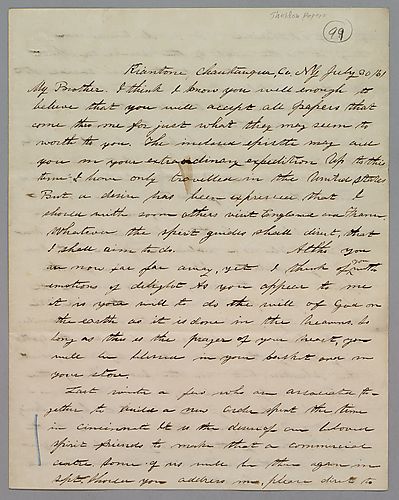 Sheldon Papers
99
Kiantone Chautauqua, Co, NY July 20/61
My Brother. I think I know you will enough to
believe that you will accept all papers that
come thro me for just what they may seem to
worth to you. The inclosed epistle may aid
you in your extraordinary expedition Up to this
time I have only travelled in the United States
But a desire has been expressed that I
should with some others visit England and France
Whatever the spirit guides shall direct, that
I shall aim to do. Altho you
are now far far away, yet I think of you with
emotions of delight As you appear to me
it is your will to do the will of God on
the earth as it is done in the heavens. As
long as this is the prayer of your heart, you
will be blessed in your basket and in
your store.
Last winter a few who are associated to-
gether to build a new order spent the time
in cincinnati It is the design of our beloved
spirit friends to make that a commercial
centre Some of us will be there again in
Sept. Should you address me, please direct to